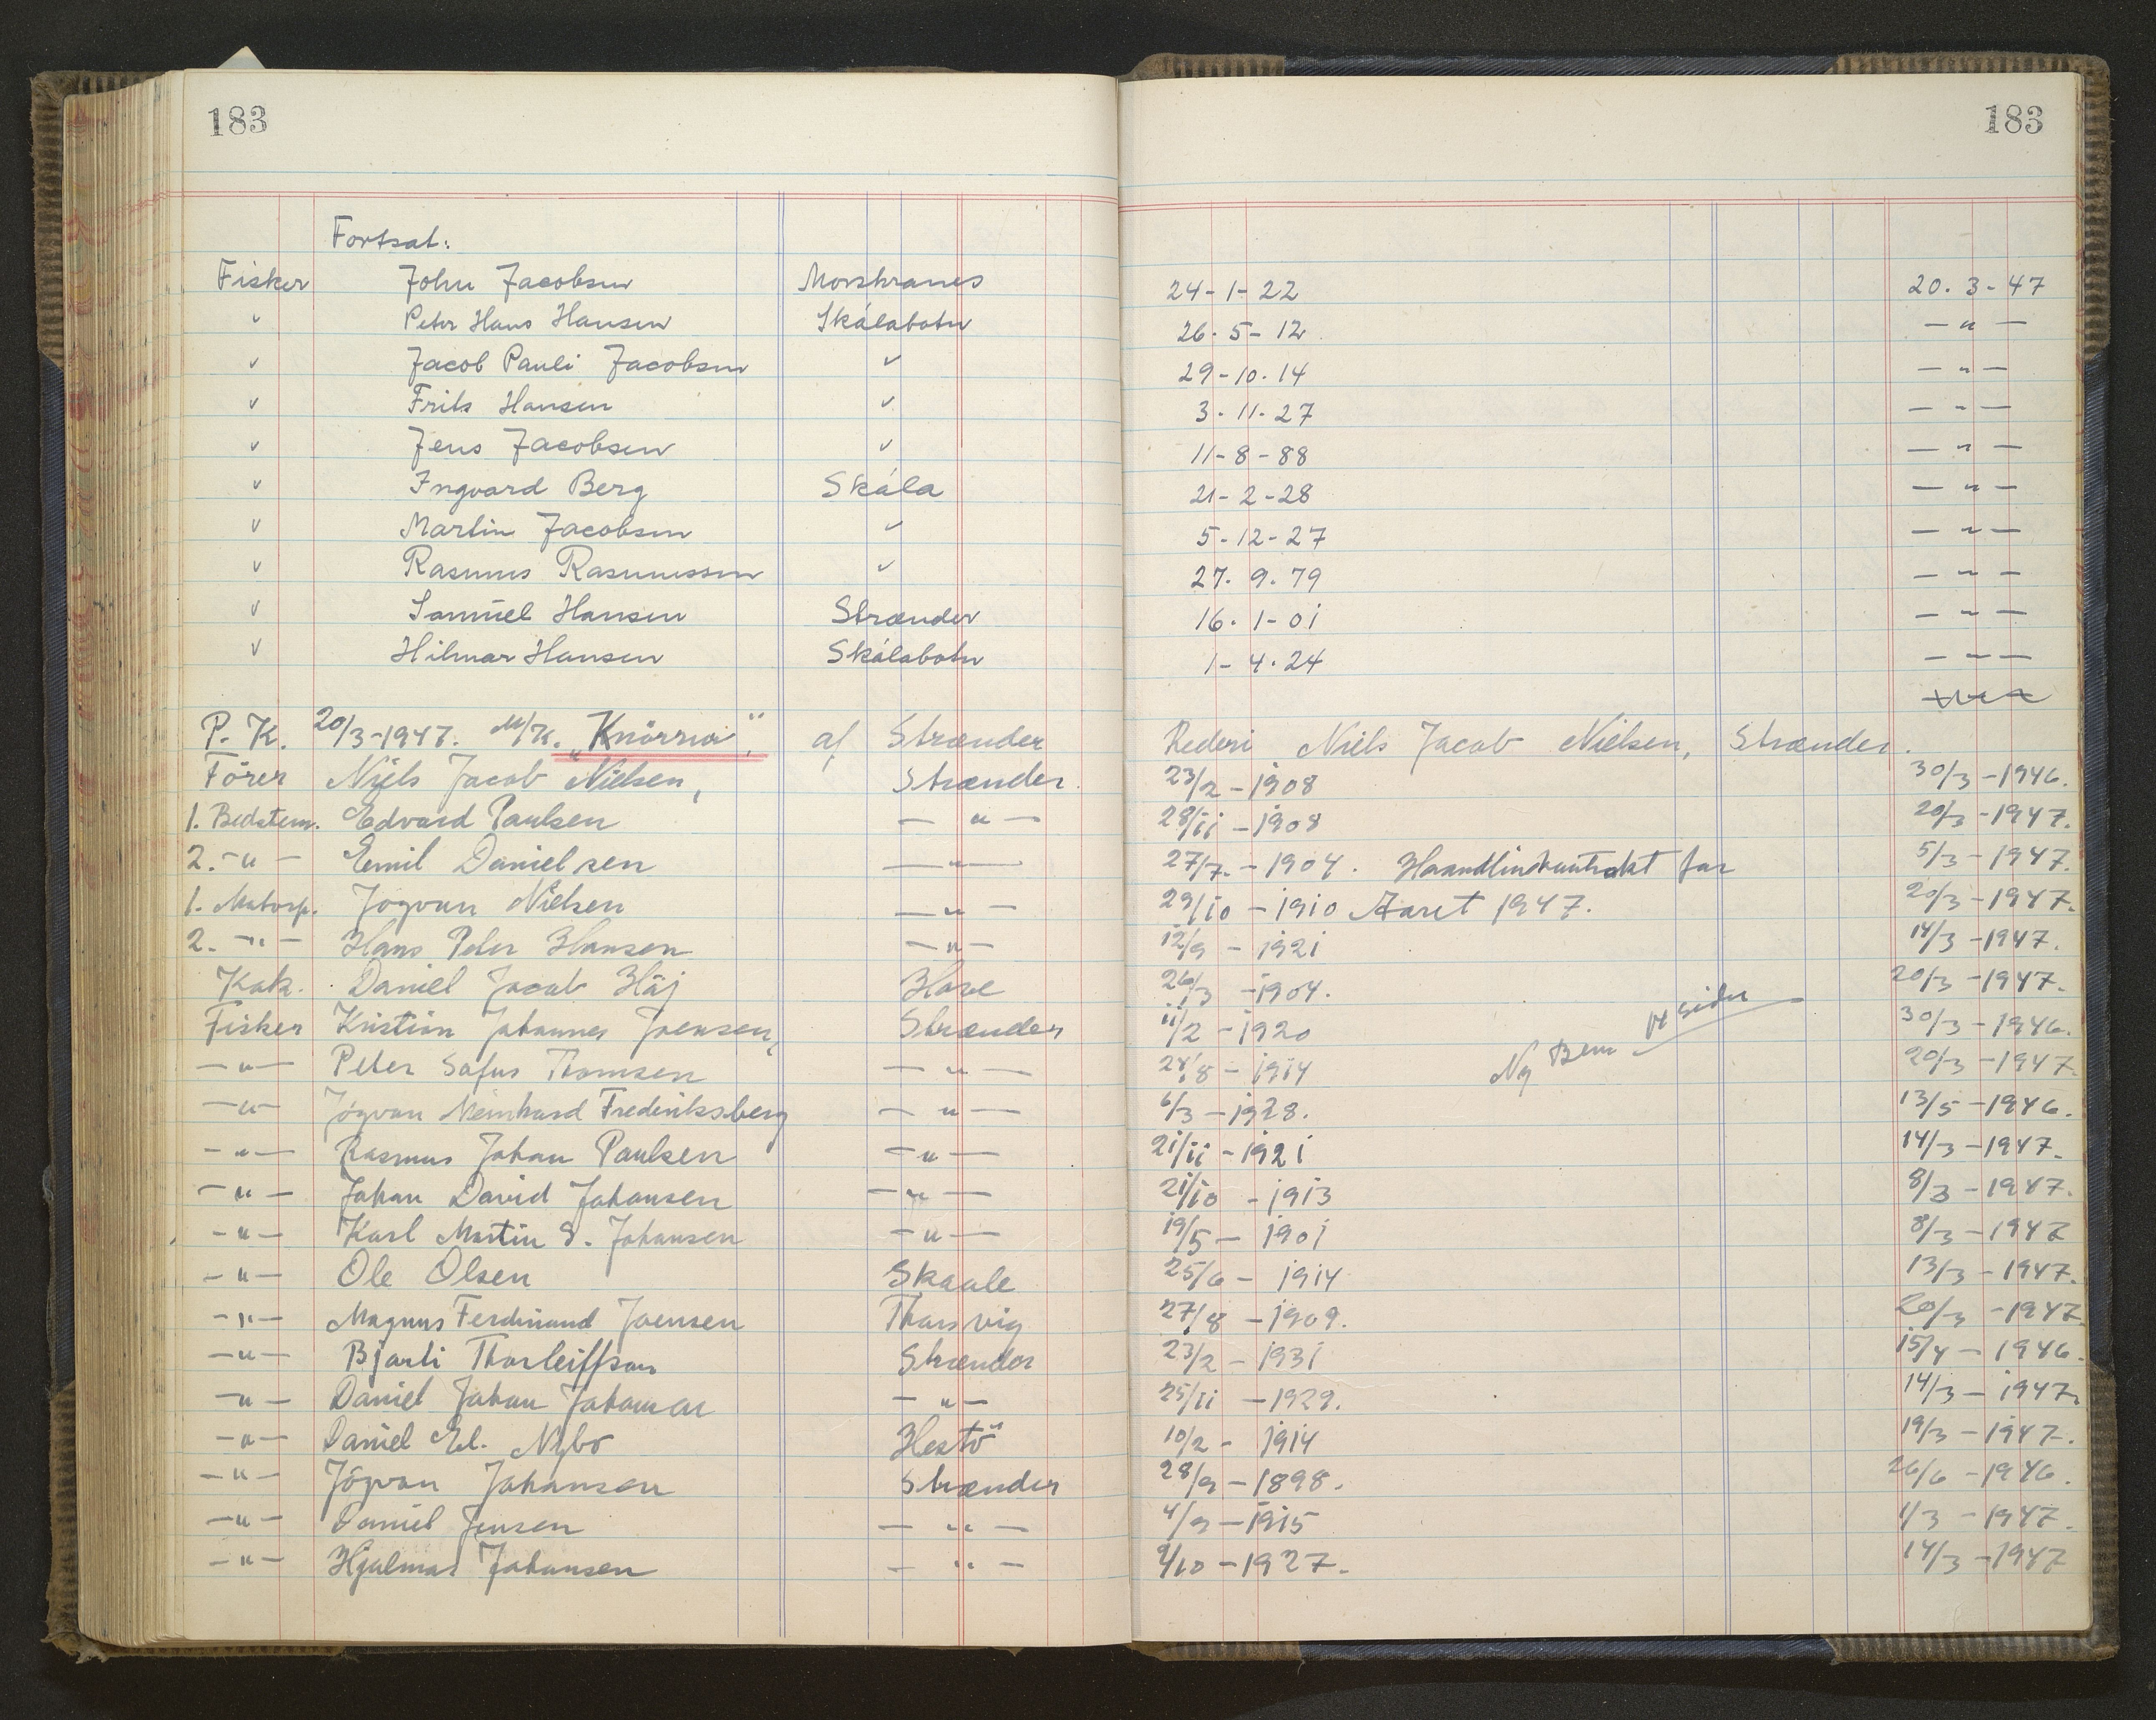 183 183
Fortsat:
Fisker John Jacobsen Morskranes 24-1-22 20.3-47
" Peter Hans Hansen Skálabotn 26.5-12 -"-
" Jacob Pauli Jacobsen " 29-10.14 -"-
" Frits Hansen " 3.11.27 -"-
" Jens Jacobsen " 11-8-88 -"-
" Ingvard Berg Skála 21-2-28 -"-
" Martin Jacobsen " 5-12-27 -"-
" Rasmus Rasmussen " 27.9.79 -"-
" Samúel Hansen Strænder 16.1-01 -"-
" Hilmar Hansen Skálabotn 1-4.24 -"-
P.K. 20/3-1947. M/K. "Knörrur", af Strænder Rederi Niels Jacob Nielsen, Strænder.
Förer Niels Jacob Nielsen, Strænder 23/2-1908 30/3-1946.
1. Bedstem. Edvard Paulsen -"- 28/11-1908 20/3-1947.
2. -"- Emil Danielsen -"- 27/7.-1904. Haandlinekontrakt for 5/3-1947.
1. Motorp. Jógvan Nielsen -"- 29/10-1910 Aaret 1947. 20/3-1947.
2. -"- Hans Peter Hansen -"- 12/9-1921 14/3-1947.
Kok. Daniel Jacob Háj 26/3-1904. 20/3-1947.
Fisker Kristian Johannes Joensen, Strænder 11/2-1920 30/3-1946.
-"- Peter Sofus Thomsen -"- 24/8-1914 Ny Bem 20/3-1947.
-"- Jógvan Meinhard Frederiksberg -"- 6/3-1928. 13/5-1946.
-"- Rasmus Johan Paulsen -"- 21/11-1921 14/3-1947.
-"- Johan David Johansen -"- 21/10-1913 8/3-1947.
-"- Karl Martin S. Johansen -"- 19/5-1901 8/3-1947
-"- Ole Olsen Skaale 25/6-1914 13/3-1947.
-"- Magnus Ferdinand Joensen Thorsvig 27/8-1909. 20/3-1947.
-"- Bjarti Thorleiffson Strænder 23/2-1931 15/4-1946.
-"- Daniel Johan Johansen -"- 25/11-1929. 14/3-1947.
-"- Daniel El. Nybo Hestö 10/2-1914 19/3-1947.
-"- Jógvan Johansen Strænder 28/9-1898. 26/6-1946.
-"- Daniel Jensen -"- 4/9-1915 1/3-1947.
-"- Hjalmar Johansen -"- 9/10-1927. 14/3-1947